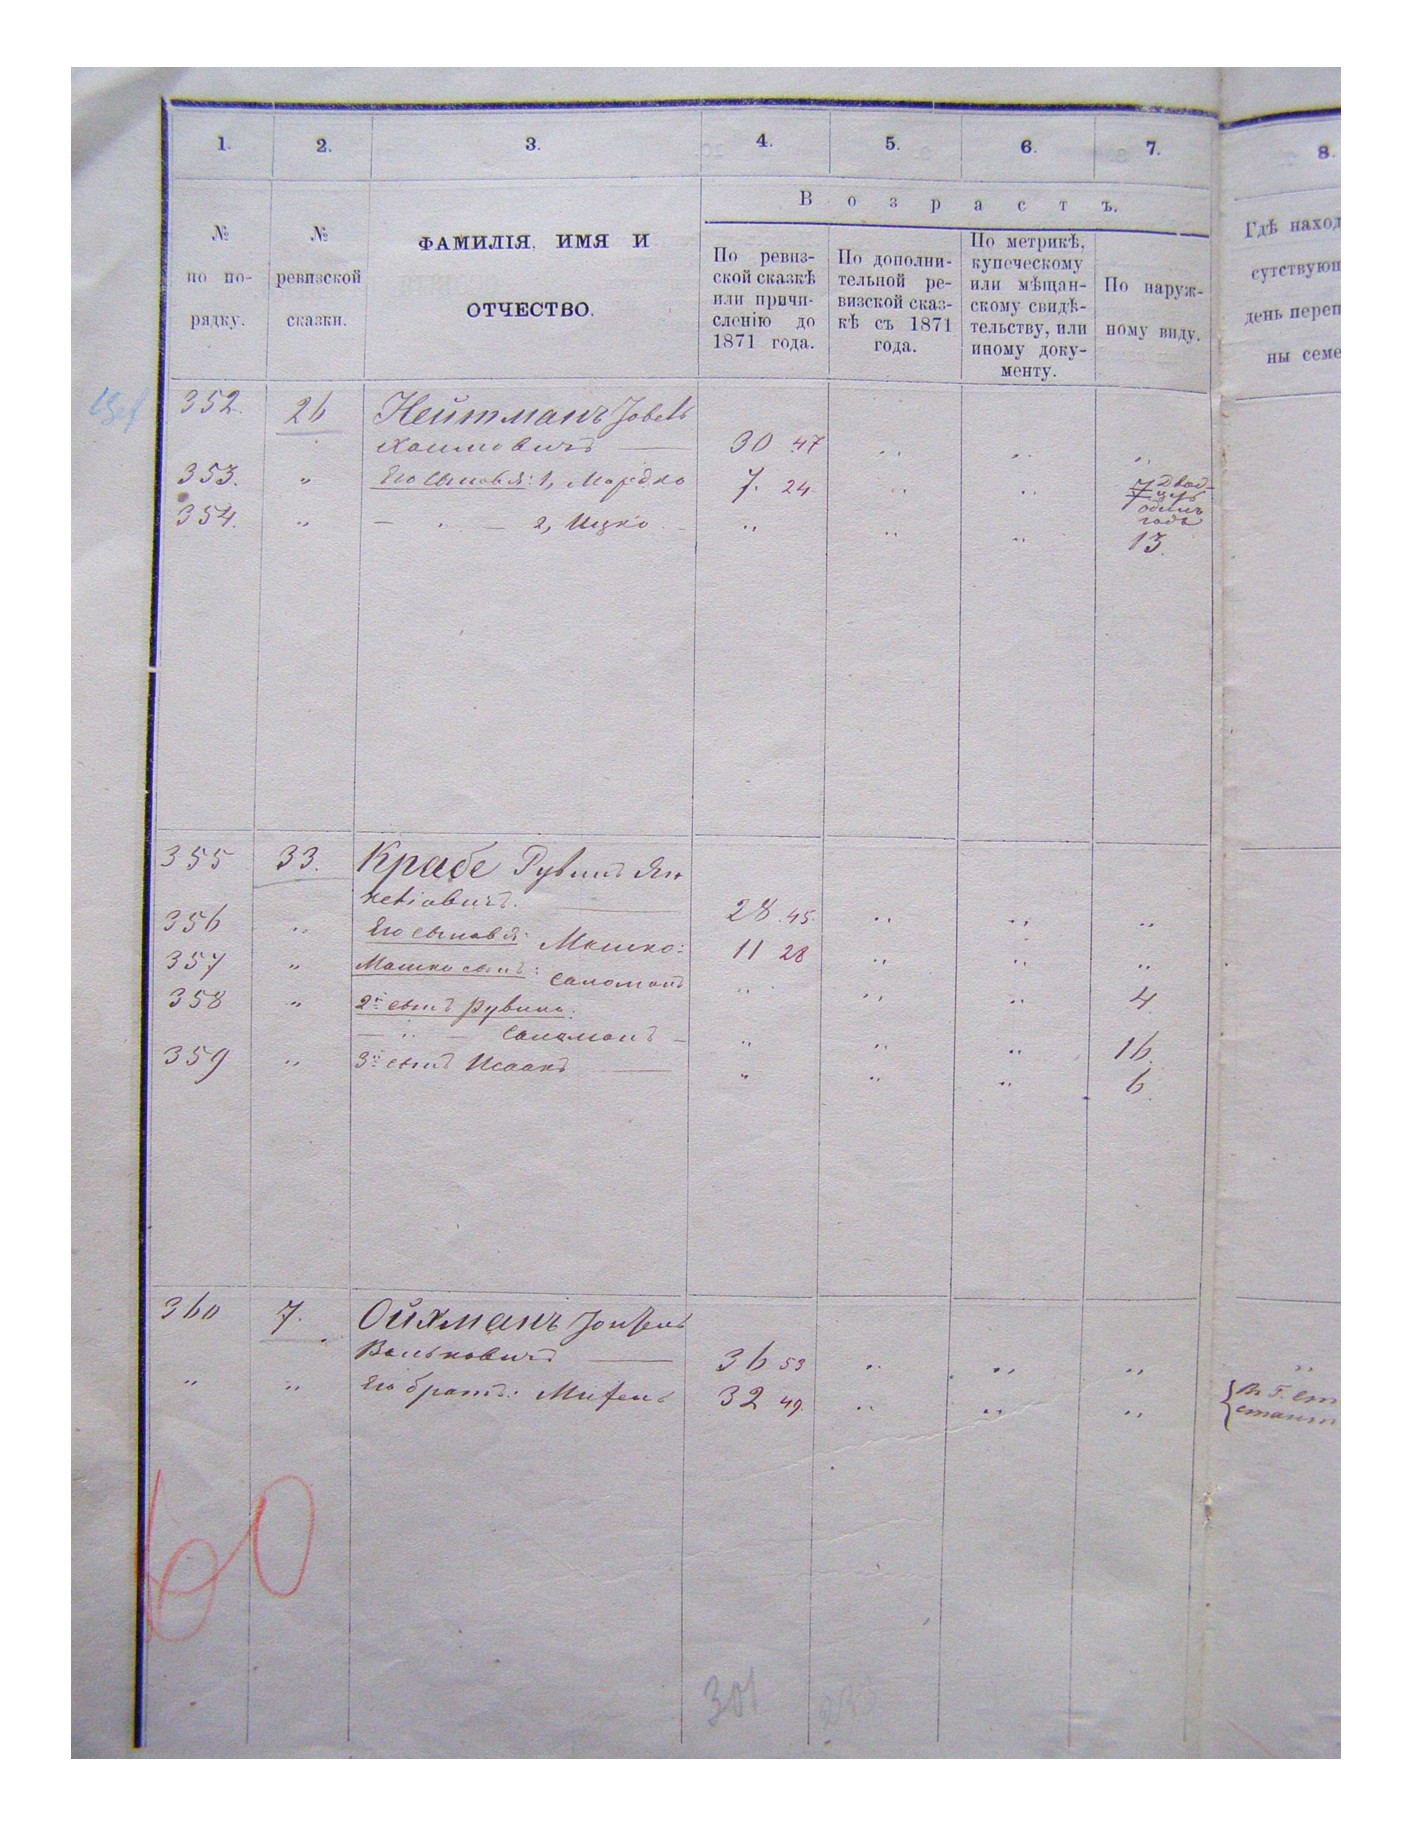 1. 2. 3. 4. 5. 6. 7. 8.
№ по порядку.
№ ревизской сказки.
ФАМИЛІЯ, ИМЯ И ОТЧЕСТВО.
Возрастъ.
По ревиз-
ской сказкѣ
или причи-
сленію до
1871 года.
По дополни-
тельной ре-
визской сказ-
кѣ съ 1871
года.
По метрикѣ,
купеческому
или мѣщан-
скому свидѣ-
тельству, или
иному доку-
менту.
По наруж-
ному виду.
Гдѣ наход
сутствующ
день переп
ны семе
352. 26 Нейтманъ
Хаимовичъ — 30 47 " " "
353. " Его сыновья: 1, Мордко 7. 24. " " 7 Двад-
цать
одинъ
годъ
354. " — " — 2, Ицко — " " " 13.
355 33. Крабе Рувинъ Ян-
келіовичъ. — 28. 45. " " "
356 " Его сыновья: Мошко: 11 28 " " "
357 " Мошки сынъ: Саломонъ " " " 4.
358 " 2й сынъ Рувина:
— " — Саломонъ — " " " 16.
359 " 3й сынъ Исаакъ — " " " 6.
360 7. Ойхманъ
Вольковичъ — 36 53 " " " "
" " Его братъ: 32 49. " " "
60
301